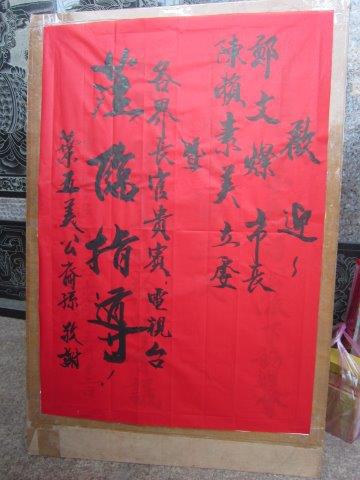 歡迎~
鄭文燦市長
陳賴素美立委
暨
各界長官貴賓.電視台
蒞臨指導!
葉五美公裔孫 敬謝